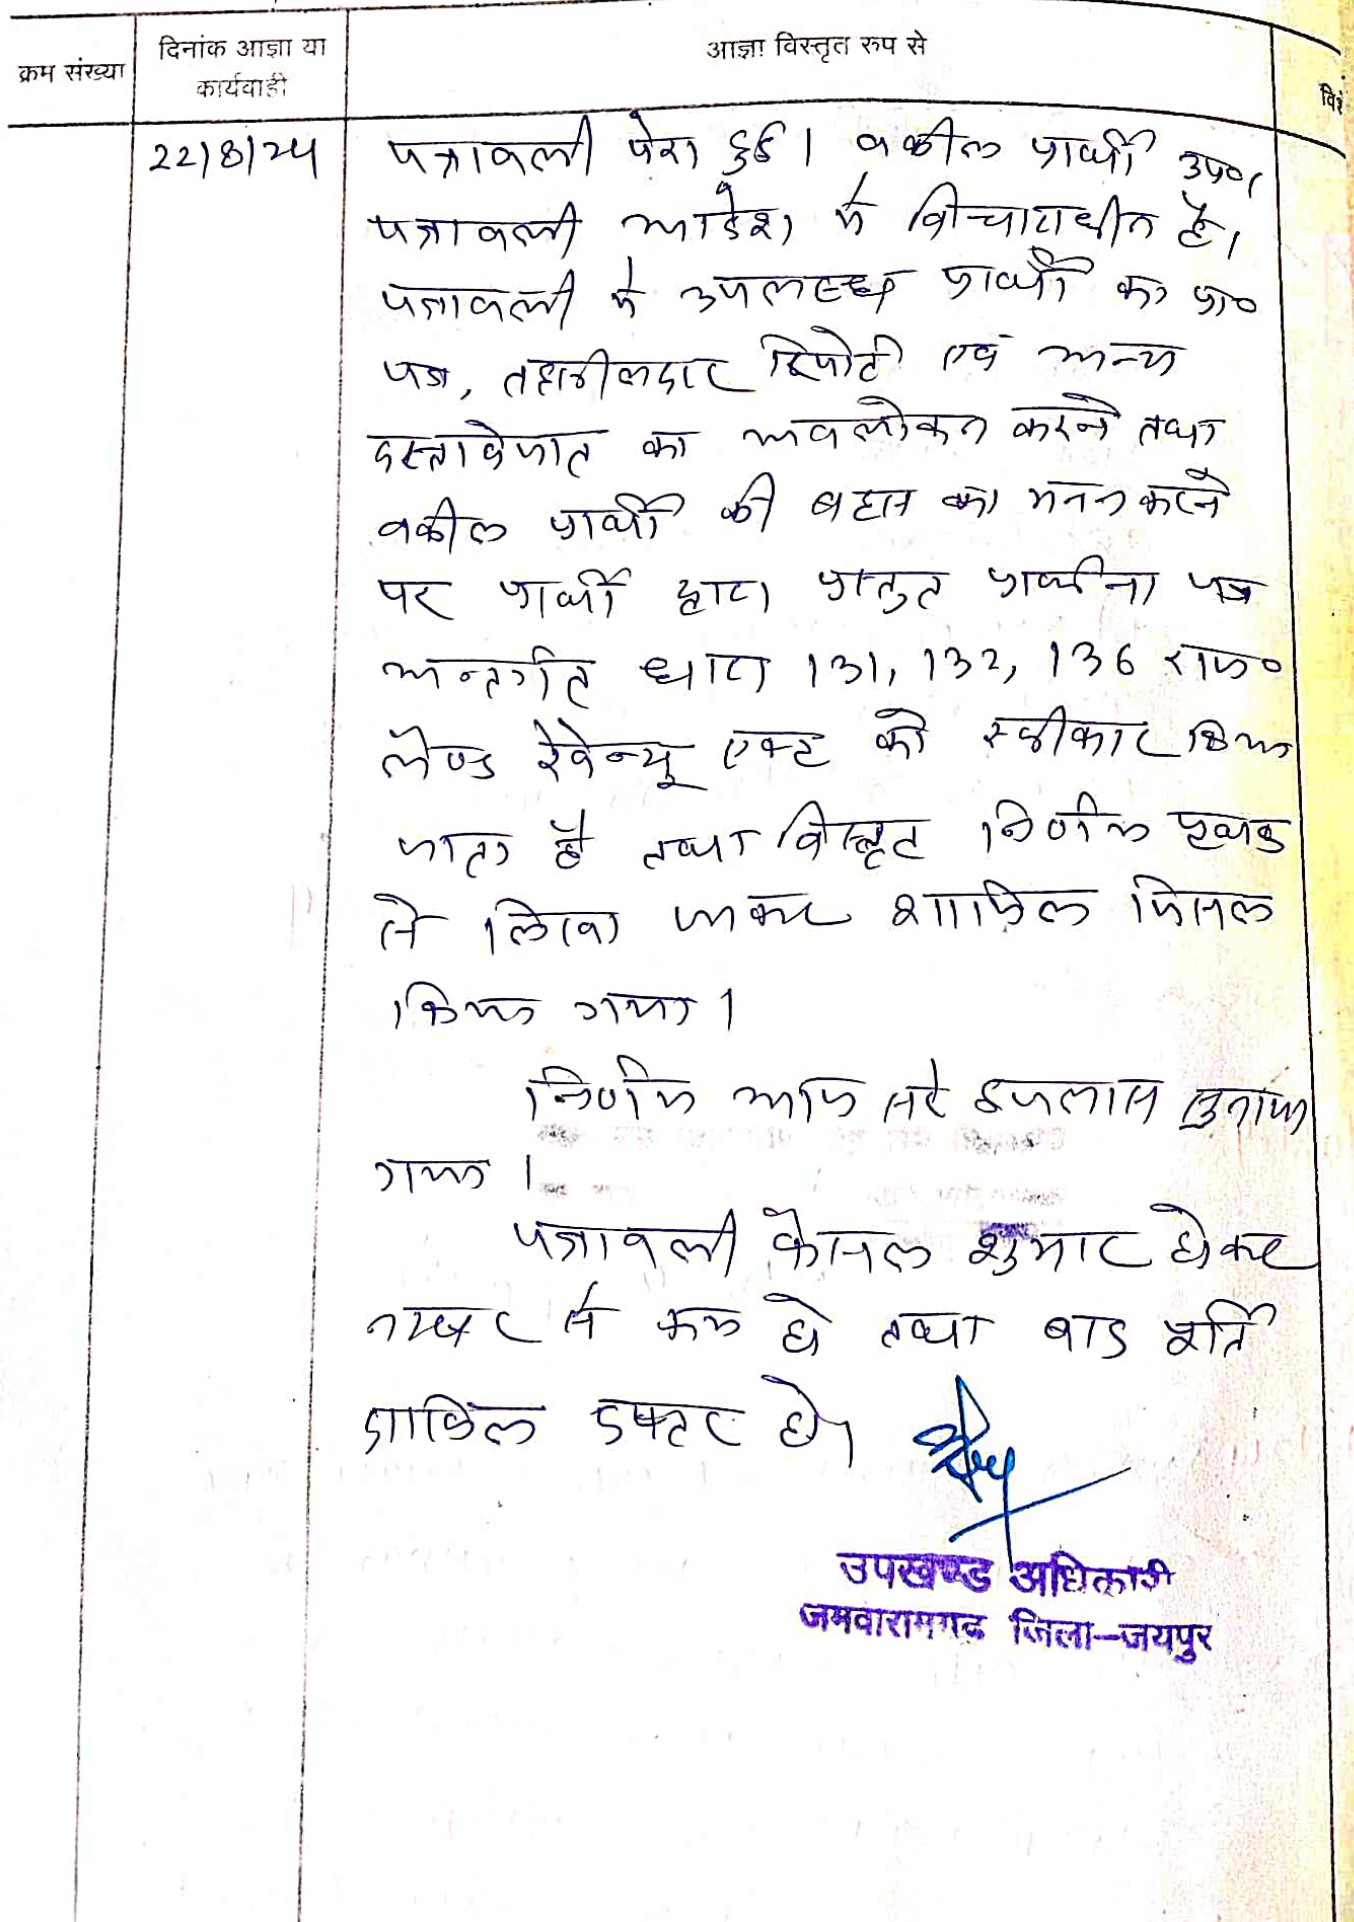 क्रम संख्या
दिनांक आज्ञा या
कार्यवाही
आज्ञा विस्तृत रुप से
22/8/24
पत्रावली पेश हुई। वकील प्रार्थी उप०।
पत्रावली आदेश में विचाराधीन है।
पत्रावली में उपलब्ध प्रार्थी का प्रा०
पत्र, तहसीलदार रिपोर्ट एवं अन्य
दस्तावेजात का अवलोकन करने तथा
वकील प्रार्थी की बहस का मनन करने
पर प्रार्थी द्वारा प्रस्तुत प्रार्थना पत्र
अन्तर्गत धारा 131, 132, 136 राज०
लेण्ड रेवेन्यू एक्ट को स्वीकार किया
जाता है तथा विस्तृत निर्णय पृथक
से लिखा जाकर शामिल मिसल
किया गया।
निर्णय आज सरे इजलास सुनाया
गया।
पत्रावली फैसल शुमार होकर
नम्बर से कम हो तथा बाद पूर्ति
दाखिल दफ्तर हो।
उपखण्ड अधिकारी
जमवारामगढ जिला-जयपुर